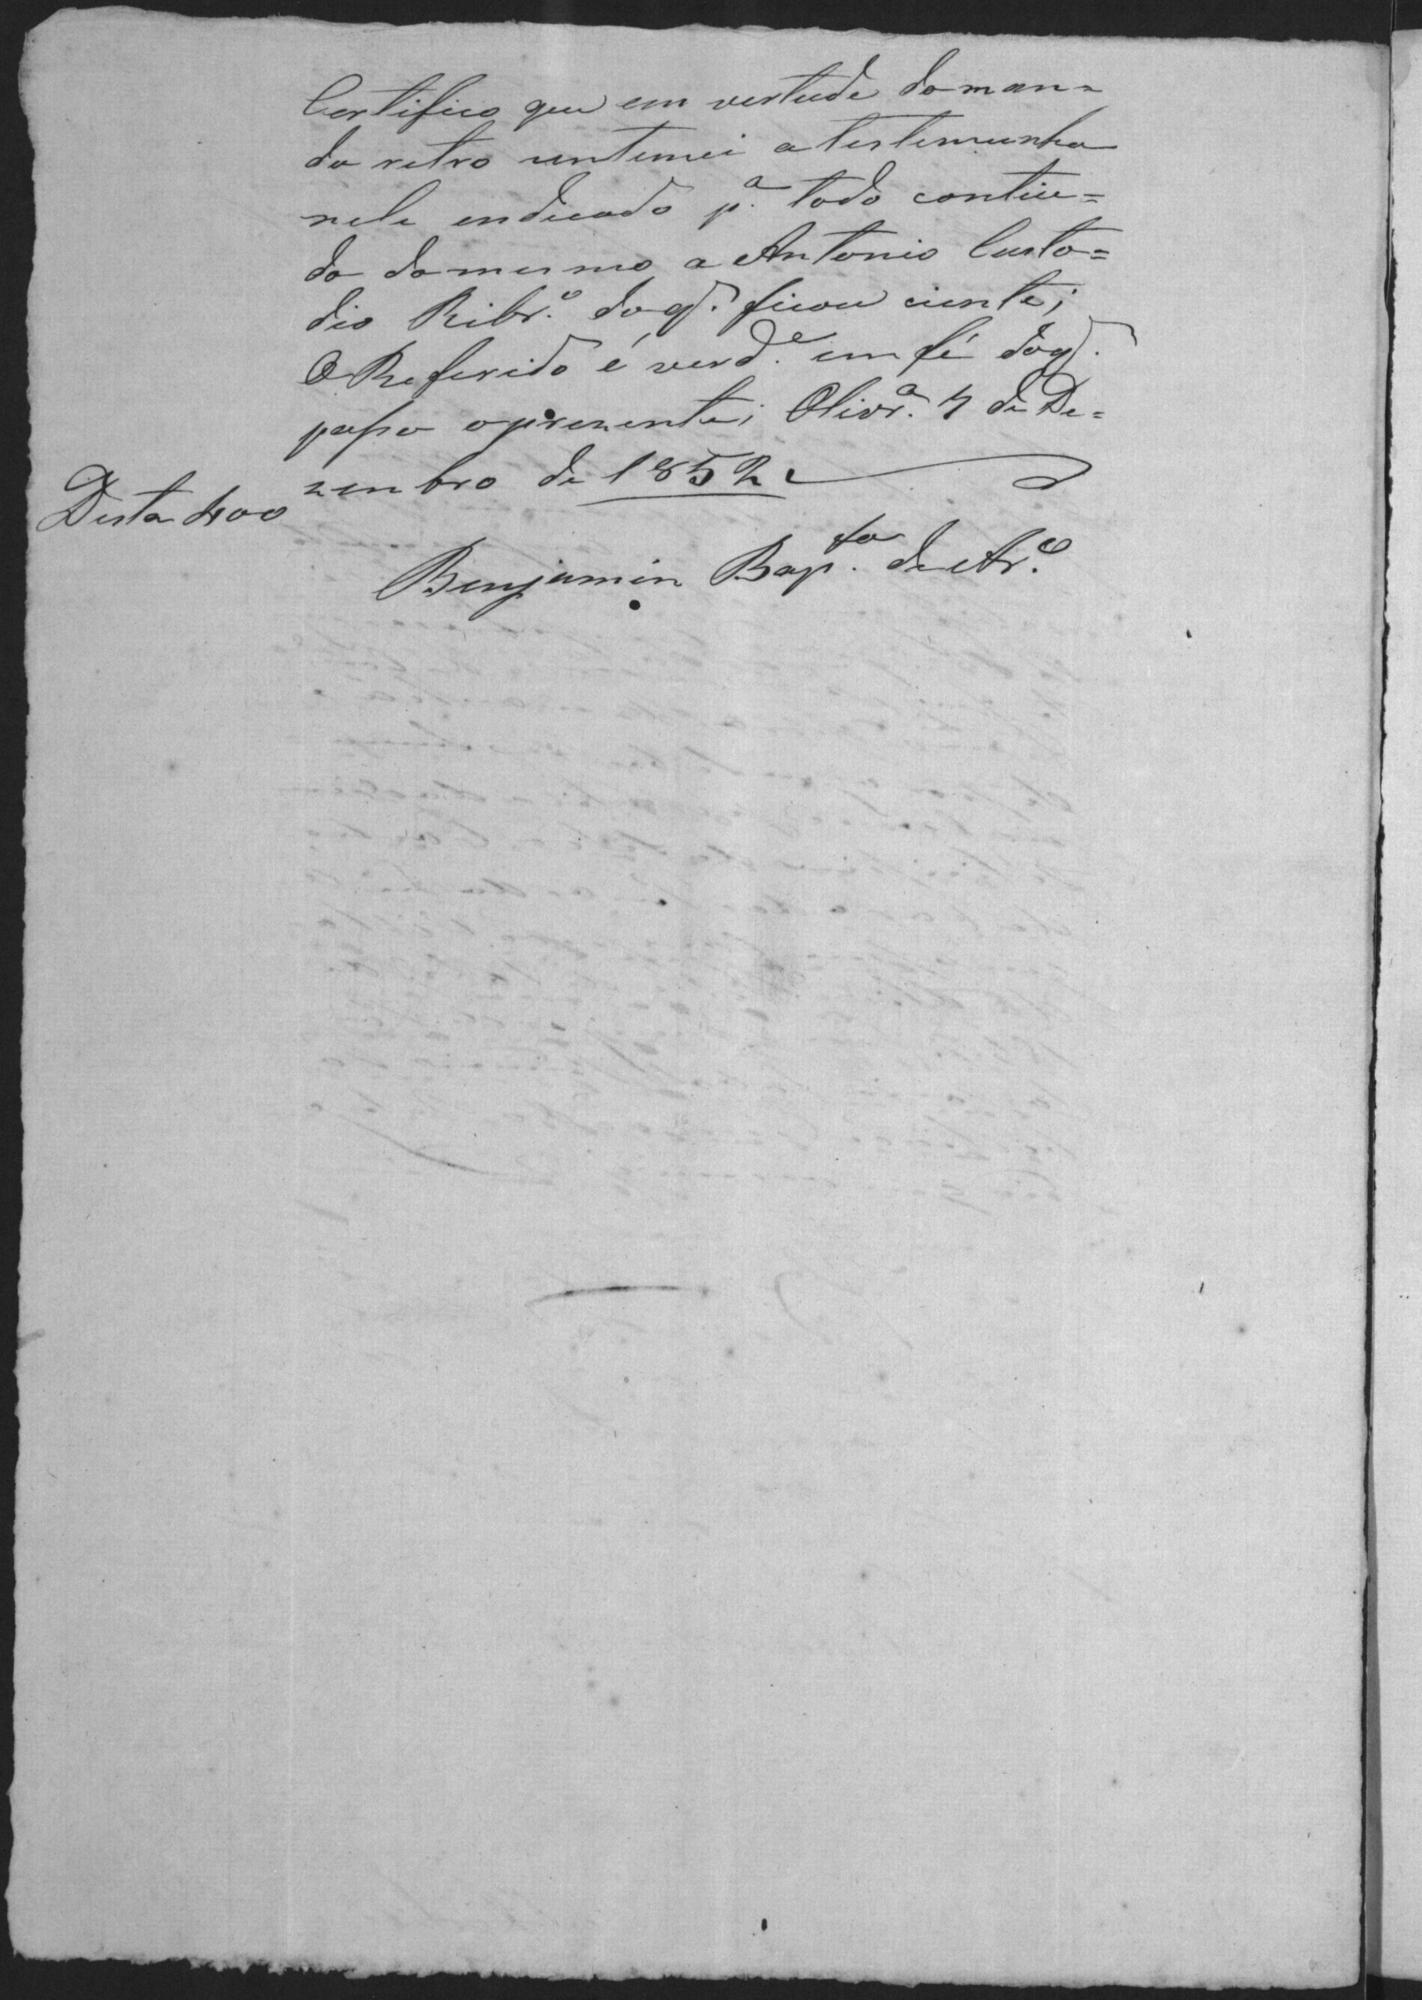 Certifico que em vertude do man=
do retro untimei a testemunha
nele endicado p.ª todo contiu=
do do mesmo a Antonio Custo=
dio Ribr.º do q. ficou ciente;
O Referido é verd.e em fé do q.
passo o prezente; Olivr.ª 7 de De=
zembro de 1852
Desta 400
Benjamin Bap.ta de Ar.º